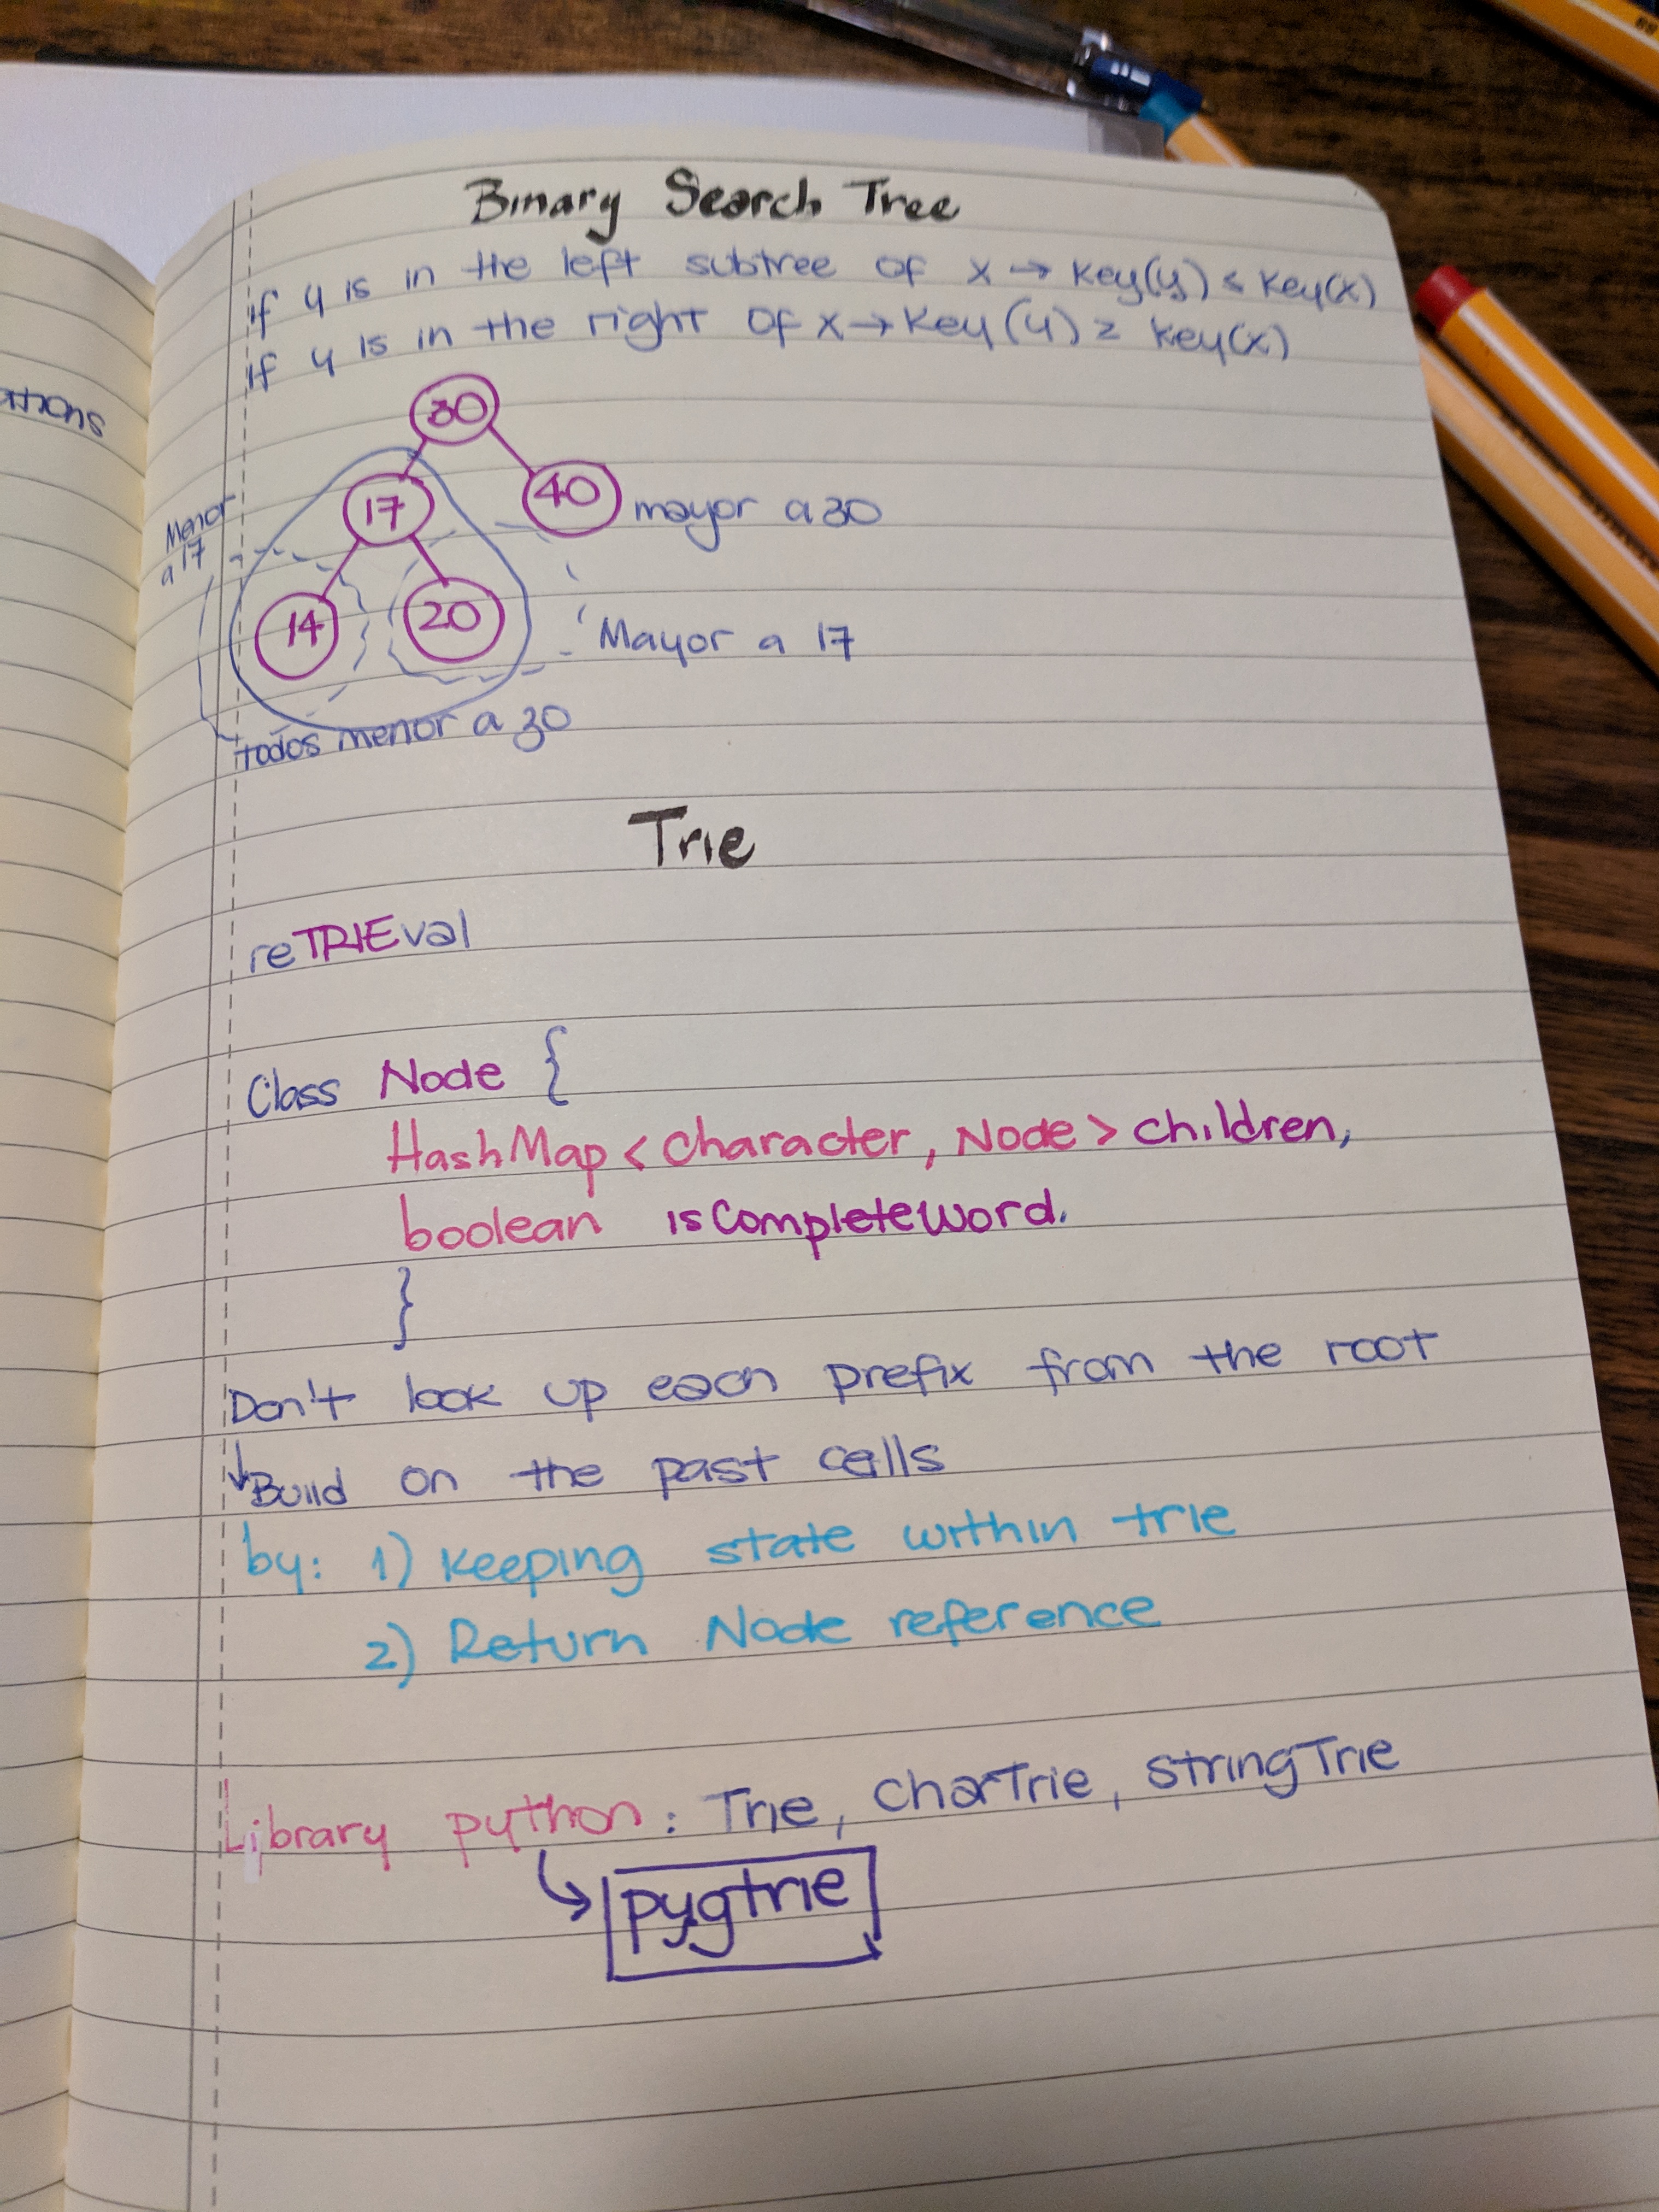 Binary Search Tree
if y is in the left subtree of x → key(y) ≤ key(x)
if y is in the right of x → key(y) ≥ key(x)
30
17
40 mayor a 30
Menor
a 17
14
20
Mayor a 17
todos menor a 30
Trie
reTRIEval
Class Node {
HashMap < character, Node > children;
boolean isCompleteWord.
}
Don't look up each prefix from the root
↓ Build on the past cells
by: 1) keeping state within trie
2) Return Node reference
Library python: Trie, CharTrie, stringTrie
↳ pygtrie